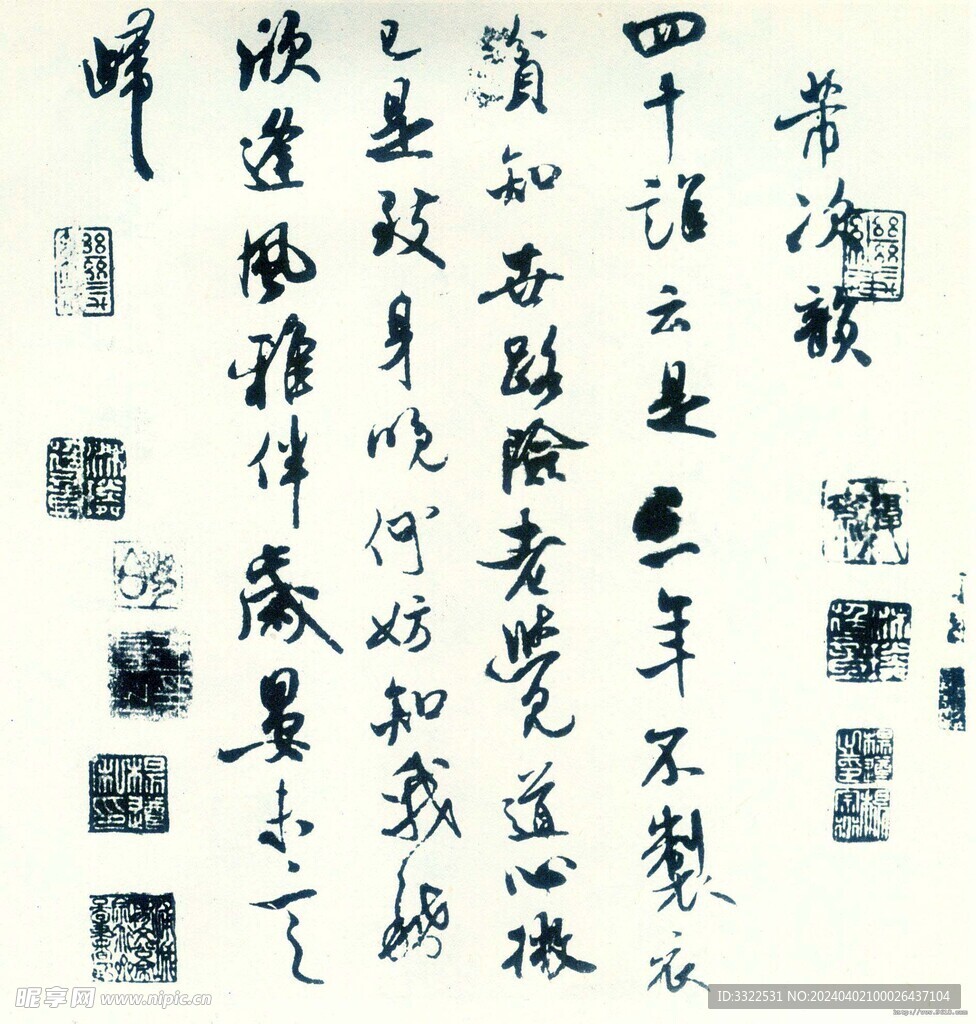 芾次韻
四十誰云是三年不製衣
貧知世路險老覺道心微
已是致身晚何妨知我稀
欣逢風雅伴歲晏未言
歸
昵享网 www.nipic.cn
ID:3322531 NO:20240402100026437104